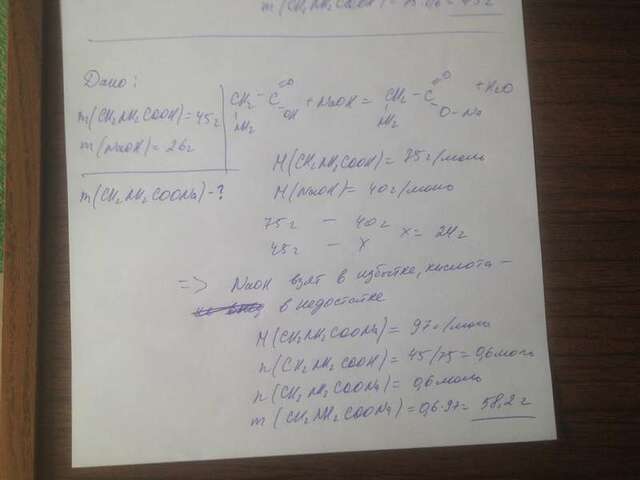 m(CH₂NH₂COOH) = 75·0,6 = 45г
Дано:
m(CH₂NH₂COOH) = 45г
m(NaOH) = 26г
m(CH₂NH₂COONa) - ?
CH₂ - C =O + NaOH = CH₂ - C =O + H₂O
NH₂ OH NH₂ O-Na
M(CH₂NH₂COOH) = 75г/моль
M(NaOH) = 40г/моль
75г - 40г
45г - X X = 24г
=> NaOH взят в избытке, кислота -
в недостатке
M(CH₂NH₂COONa) = 97г/моль
n(CH₂NH₂COOH) = 45/75 = 0,6моль
n(CH₂NH₂COONa) = 0,6моль
m(CH₂NH₂COONa) = 0,6·97 = 58,2г